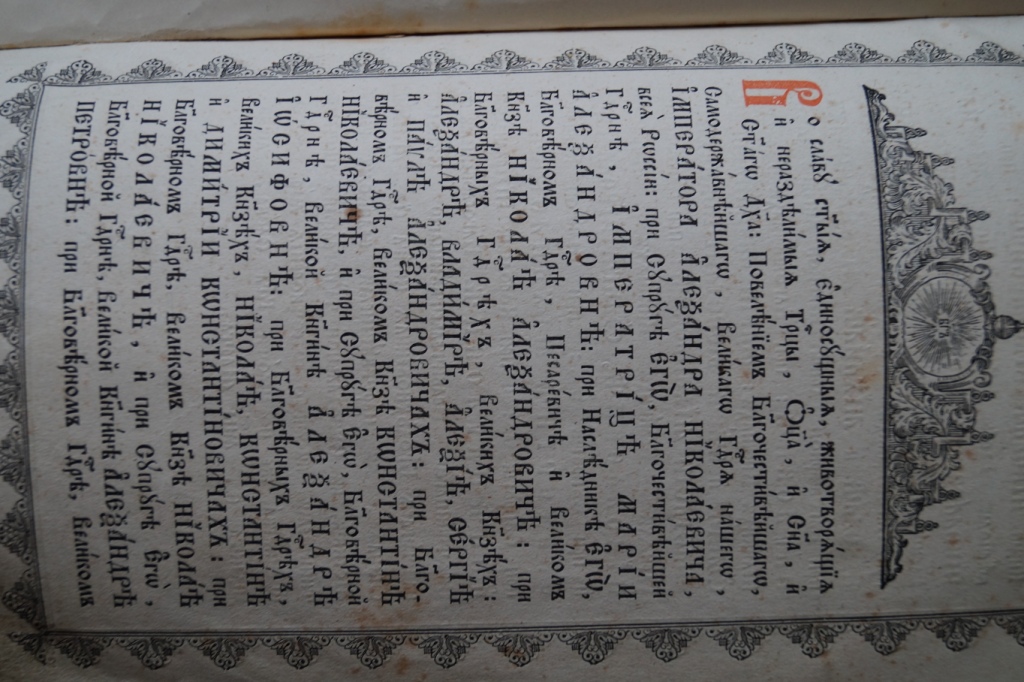 Во сла́вꙋ ст҃ы́ѧ, є҆диносꙋ́щныѧ, животворѧ́щїѧ
и҆ нераздѣ́лимыѧ Трⷪ҇цы, Ѻ҆ц҃а̀, и҆ Сн҃а, и҆
Ст҃а́гѡ Дх҃а: Повелѣ́нїемъ Бл҃гочести́вѣйшагѡ,
Самодержа́внѣйшагѡ, вели́кагѡ Гдⷭ҇рѧ на́шегѡ,
І҆мпера́тора А҆леѯа́ндра Нїкола́евича,
всеѧ̀ Рѡссі́и: при Сꙋпрꙋ́гѣ є҆гѡ̀, Бл҃гочести́вѣйшей
Гдⷭ҇рнѣ, І҆мператри́цѣ Марі́и
А҆леѯа́ндровнѣ: при Наслѣ́дникѣ є҆гѡ̀,
Бл҃говѣ́рномъ Гдⷭ҇рѣ, Цесаре́вичѣ и҆ вели́комъ
Кнѧ́зѣ Нїкола́ѣ А҆леѯа́ндровичѣ: при
Бл҃говѣ́рныхъ Гдⷭ҇рѣхъ, вели́кихъ Кнѧзѣ́хъ:
А҆леѯа́ндрѣ, Влади́мїрѣ, А҆леѯі́ѣ, Се́ргїѣ
и҆ Па́ѵлѣ А҆леѯа́ндровичахъ: при Бл҃го-
вѣ́рномъ Гдⷭ҇рѣ, вели́комъ Кнѧ́зѣ Кѡнстанті́нѣ
Нїкола́евичѣ, и҆ при Сꙋпрꙋ́гѣ є҆гѡ̀, Бл҃говѣ́рной
Гдⷭ҇рнѣ, вели́кой Кнѧги́нѣ А҆леѯа́ндрѣ
І҆ѡ́сифовнѣ: при Бл҃говѣ́рныхъ Гдⷭ҇рѣхъ,
вели́кихъ Кнѧзѣ́хъ, Нїкола́ѣ, Кѡнстанті́нѣ
и҆ Дими́трїи Кѡнстанті́новичахъ: при
Бл҃говѣ́рномъ Гдⷭ҇рѣ, вели́комъ Кнѧ́зѣ Нїкола́ѣ
Нїкола́евичѣ, и҆ при Сꙋпрꙋ́гѣ є҆гѡ̀,
Бл҃говѣ́рной Гдⷭ҇рнѣ, вели́кой Кнѧги́нѣ А҆леѯа́ндрѣ
Петро́внѣ: при Бл҃говѣ́рномъ Гдⷭ҇рѣ, вели́комъ